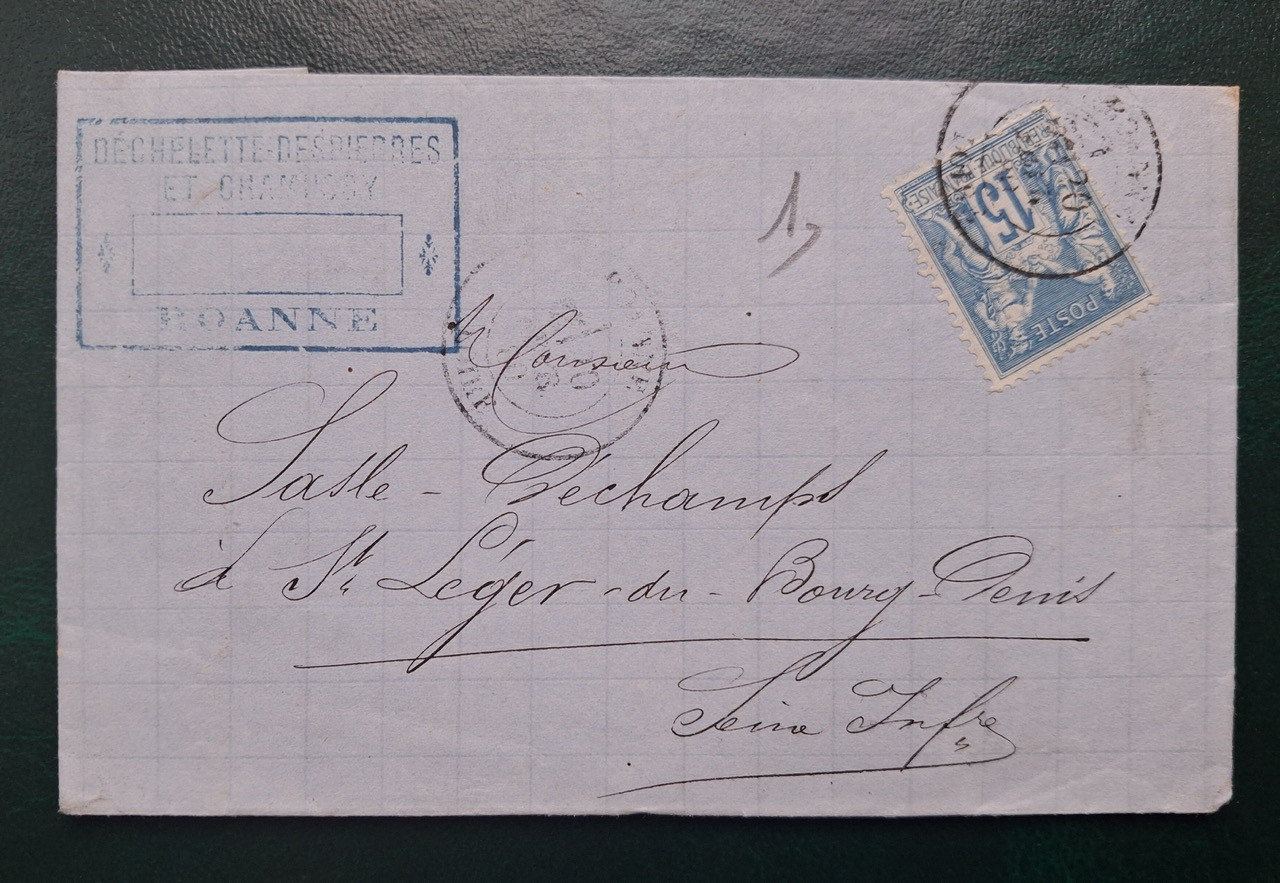 DÉCHELETTE-DESPIERRES
ET
ROANNE
15
RÉPUBLIQUE FRANÇAISE
POSTE
Monsieur
Sasle-Déchamps
à St. Léger-du-Bourg-Denis
Seine Infre